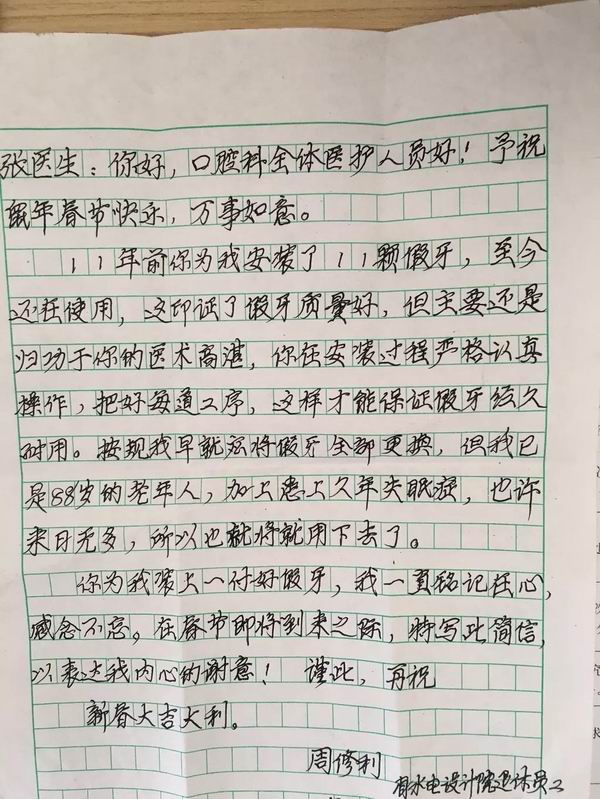 张医生：你好，口腔科全体医护人员好！予祝
鼠年春节快乐，万事如意。
11年前你为我安装了11颗假牙，至今
还在使用，这印证了假牙质量好，但主要还是
归功于你的医术高湛，你在安装过程严格认真
操作，把好每道工序，这样才能保证假牙经久
耐用。按规我早就应将假牙全部更换，但我已
是88岁的老年人，加上患上久年失眠症，也许
来日无多，所以也就将就用下去了。
你为我装上一付好假牙，我一直铭记在心，
感念不忘。在春节即将到来之际，特写此简信，
以表达我内心的谢意！谨此，再祝
新春大吉大利。
周修利
省水电设计院退休员工